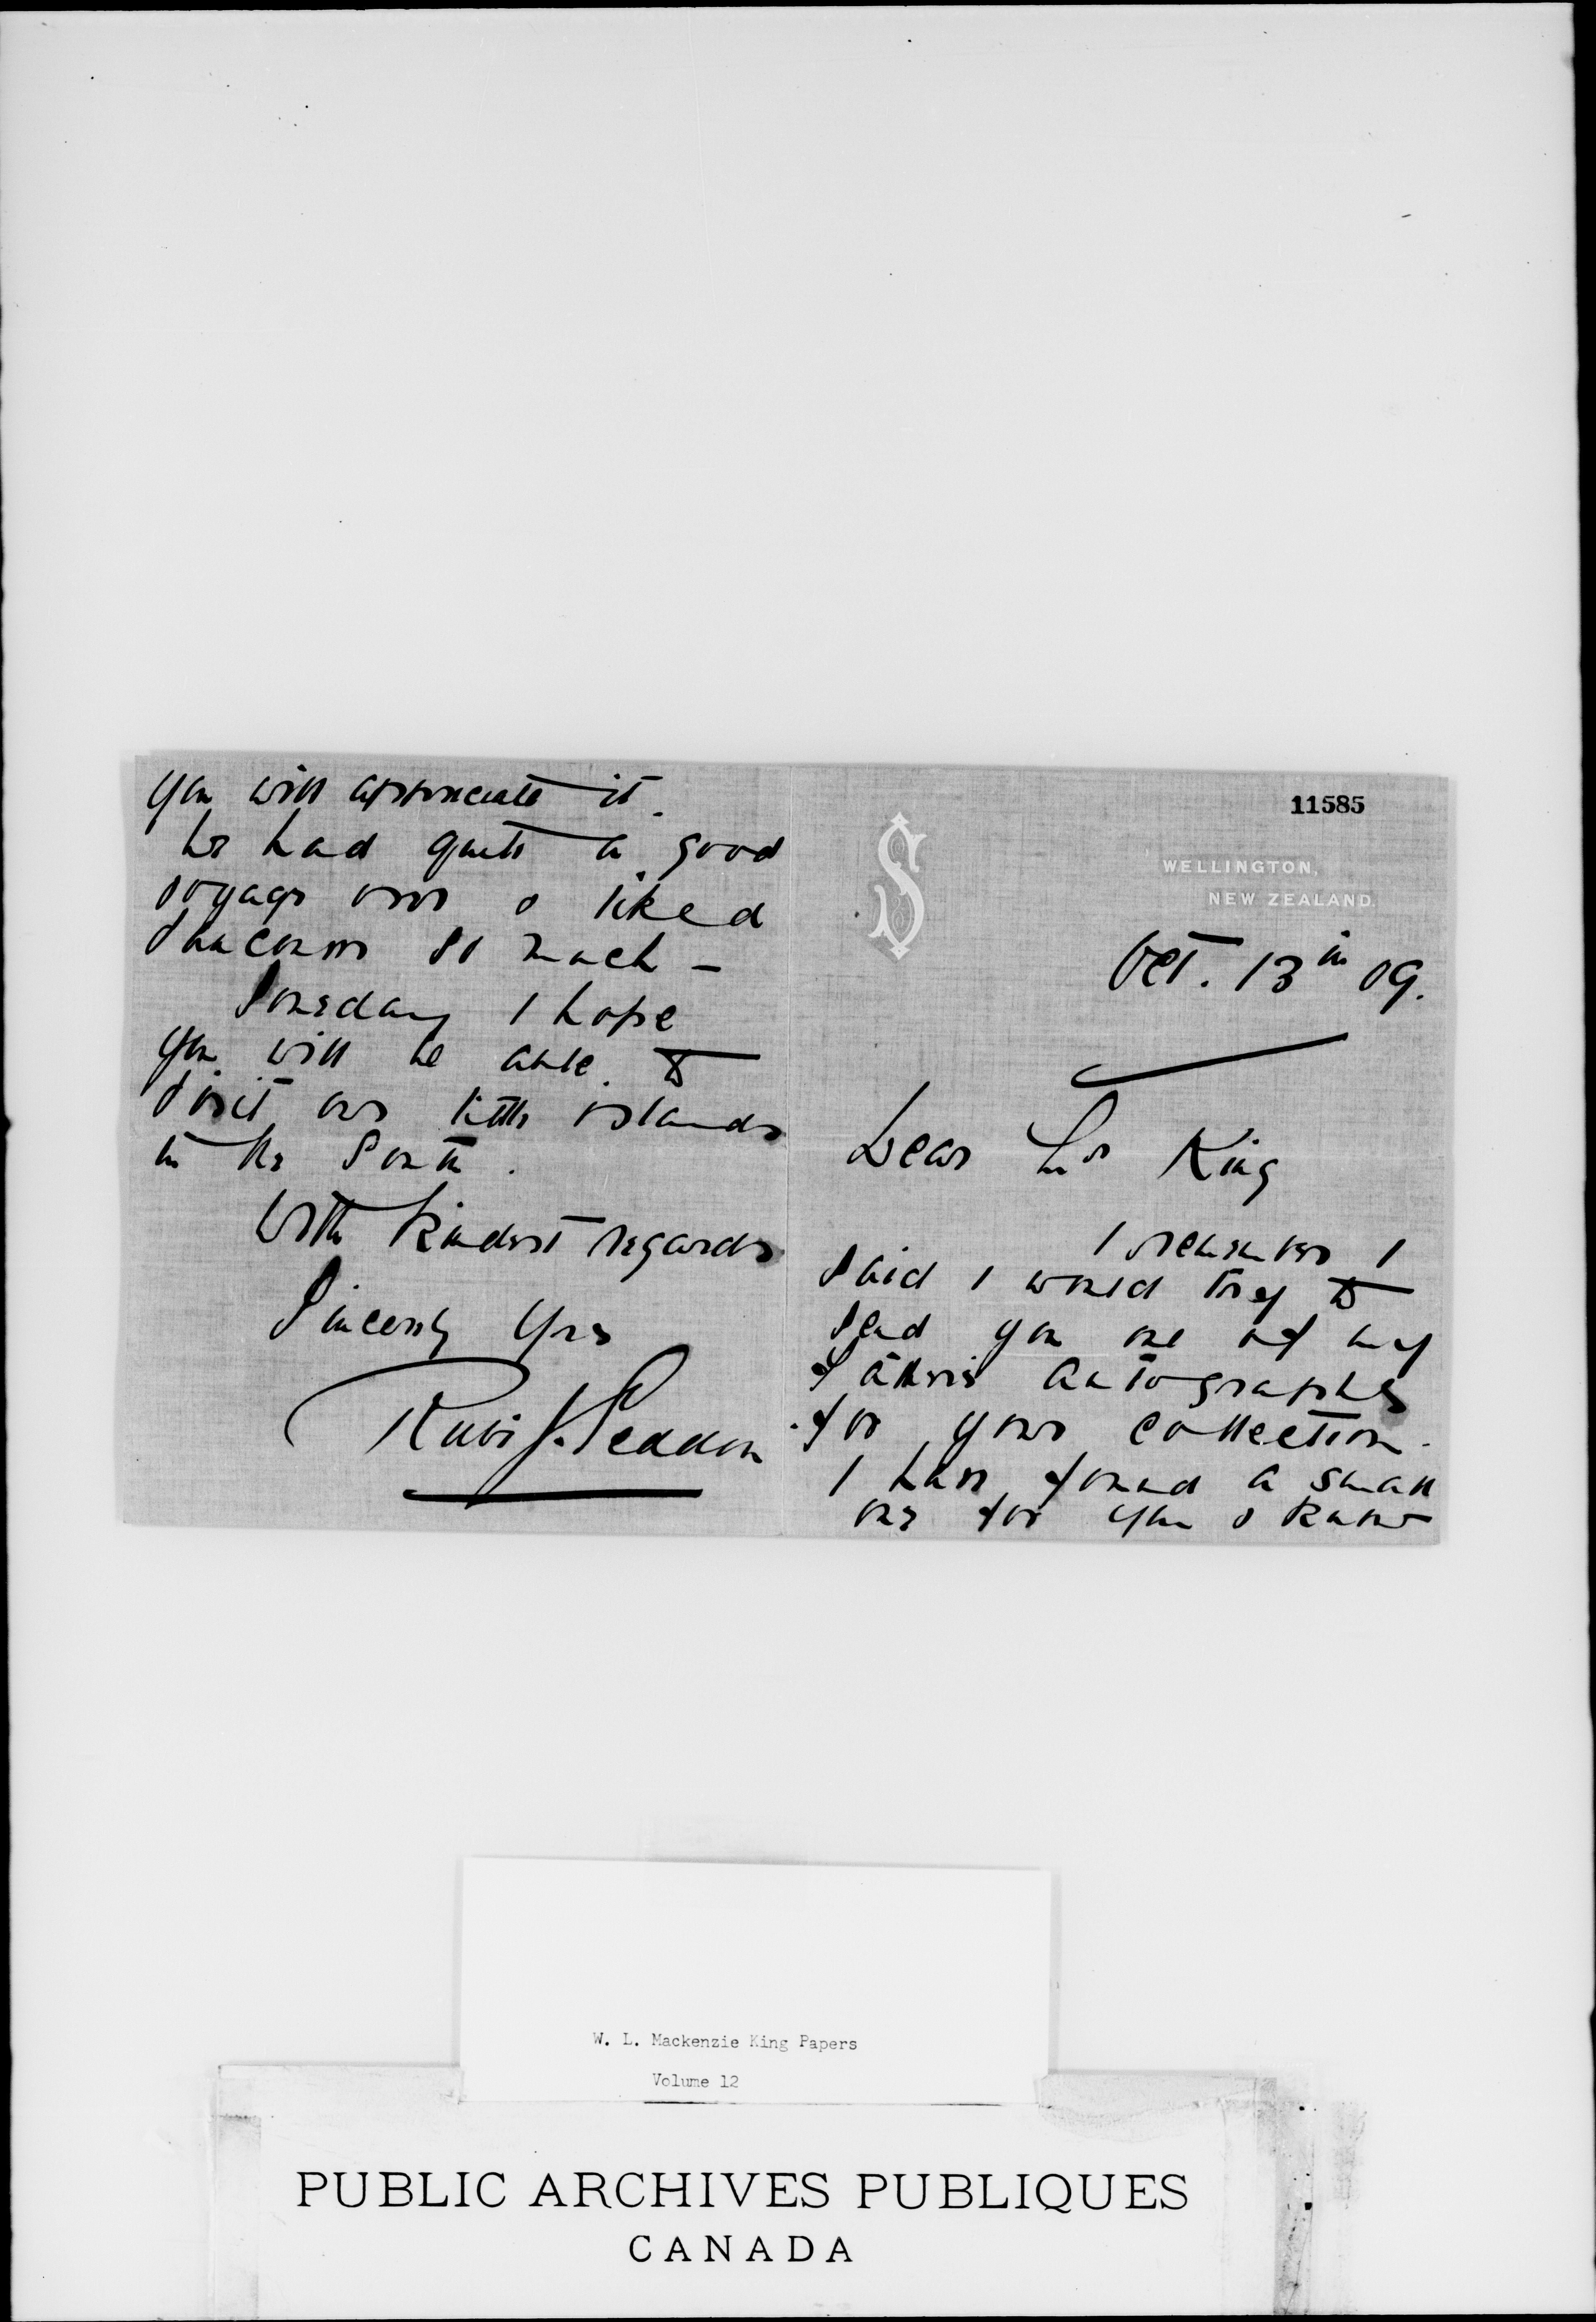 11585
S
WELLINGTON,
NEW ZEALAND.
Oct. 13th 09.
Dear Mr King
I remember I
said I would try to
send you one of my
father's autographs
for your collection.
I have found a small
one for you & know
you will appreciate it.
We had quite a good
voyage over & liked
Vancouver so much –
Someday I hope
you will be able to
visit our little islands
in the South.
With kindest regards
Sincerely Yrs
Rubi J. Seddon
W. L. Mackenzie King Papers
Volume 12
PUBLIC ARCHIVES PUBLIQUES
CANADA